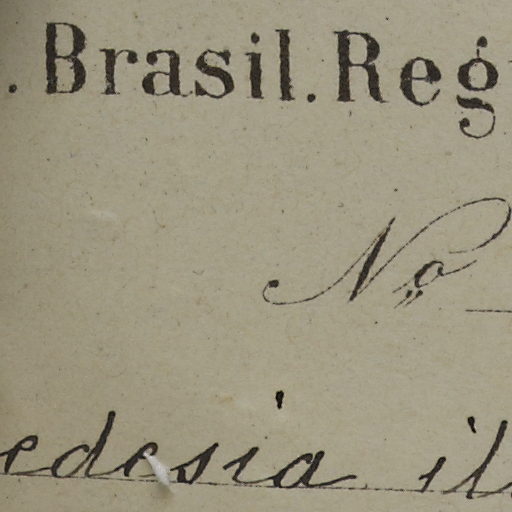 . Brasil. Reg
No
edesia il